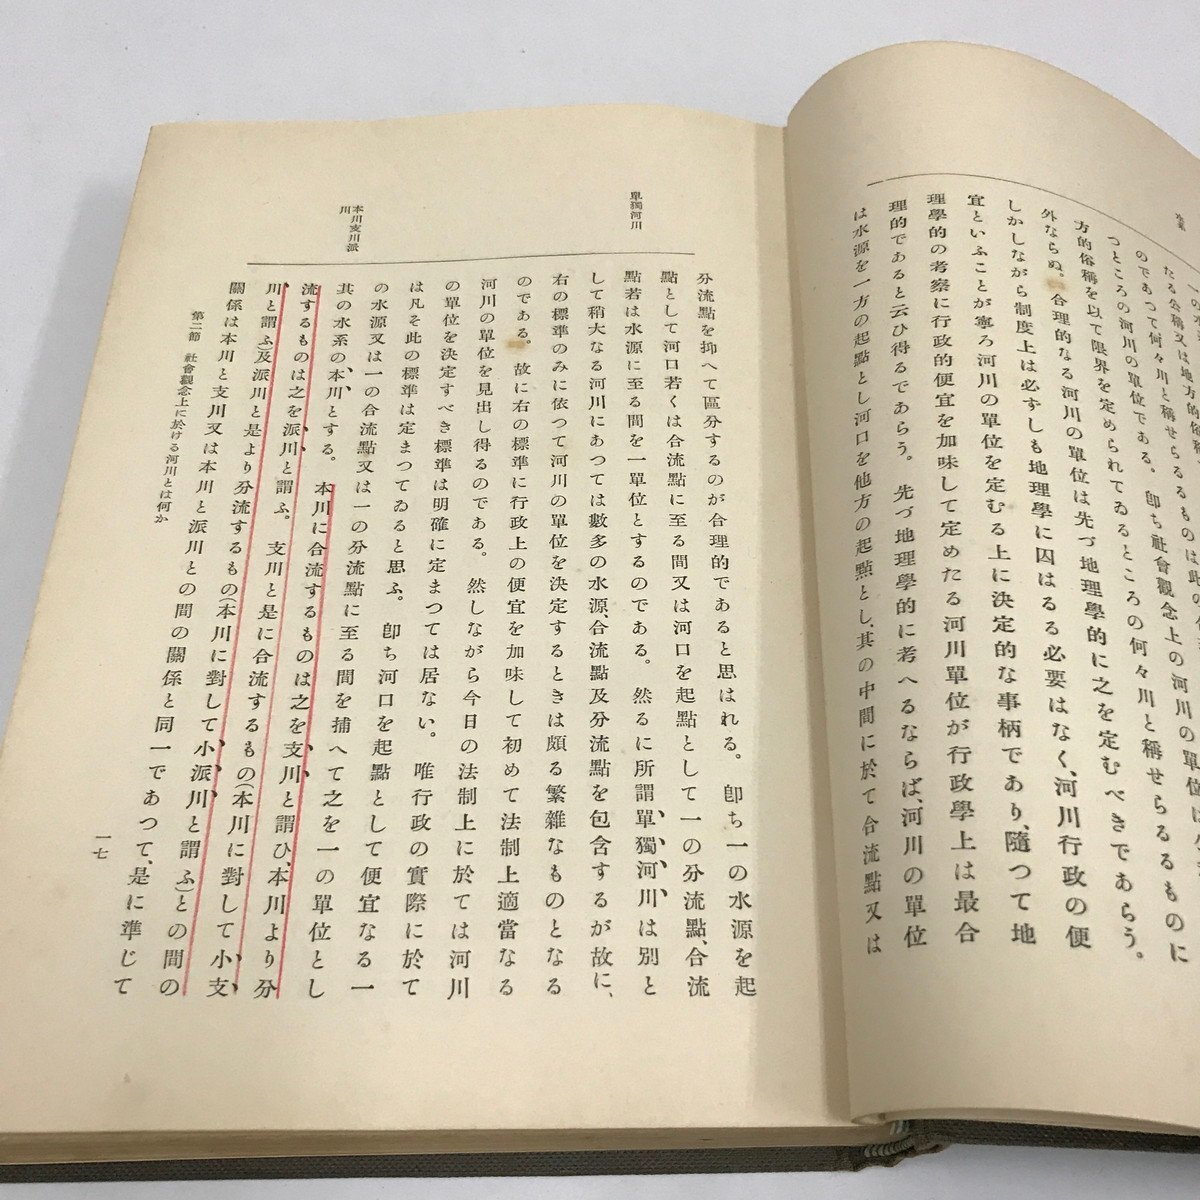 たる公稱又は地方的俗稱
のであつて何々川と稱せらるるものは此の
つところの河川の單位である。卽ち社會觀念上の河川の單位は
方的俗稱を以て限界を定められてゐるところの何々川と稱せらるるものに
外ならぬ。合理的なる河川の單位は先づ地理學的に之を定むべきであらう。
しかしながら制度上は必ずしも地理學に囚はる必要はなく、河川行政の便
宜といふことが寧ろ河川の單位を定むる上に決定的な事柄であり、隨つて地
理學的の考察に行政的便宜を加味して定めたる河川單位が行政學上は最合
理的であると云ひ得るであらう。先づ地理學的に考へるならば、河川の單位
は水源を一方の起點とし河口を他方の起點とし、其の中間に於て合流點又は
單獨河川
本川支川派
川
分流點を抑へて區分するのが合理的であると思はれる。卽ち一の水源を起
點として河口若くは合流點に至る間又は河口を起點として一の分流點、合流
點若は水源に至る間を一單位とするのである。然るに所謂單獨河川は別と
して稍大なる河川にあつては數多の水源、合流點及分流點を包含するが故に、
右の標準のみに依つて河川の單位を決定するときは頗る繁雜なものとなる
のである。故に右の標準に行政上の便宜を加味して初めて法制上適當なる
河川の單位を見出し得るのである。然しながら今日の法制上に於ては河川
の單位を決定すべき標準は明確に定まつては居ない。唯行政の實際に於て
は凡そ此の標準は定まつてゐると思ふ。卽ち河口を起點として便宜なる一
の水源又は一の合流點又は一の分流點に至る間を捕へて之を一の單位とし
其の水系の本川とする。本川に合流するものは之を支川と謂ひ、本川より分
流するものは之を派川と謂ふ。支川と是に合流するもの(本川に對して小支
川と謂ふ)及派川と是より分流するもの(本川に對して小派川と謂ふ)との間の
關係は本川と支川又は本川と派川との間の關係と同一であつて、是に準じて
第二節 社會觀念上に於ける河川とは何か
一七